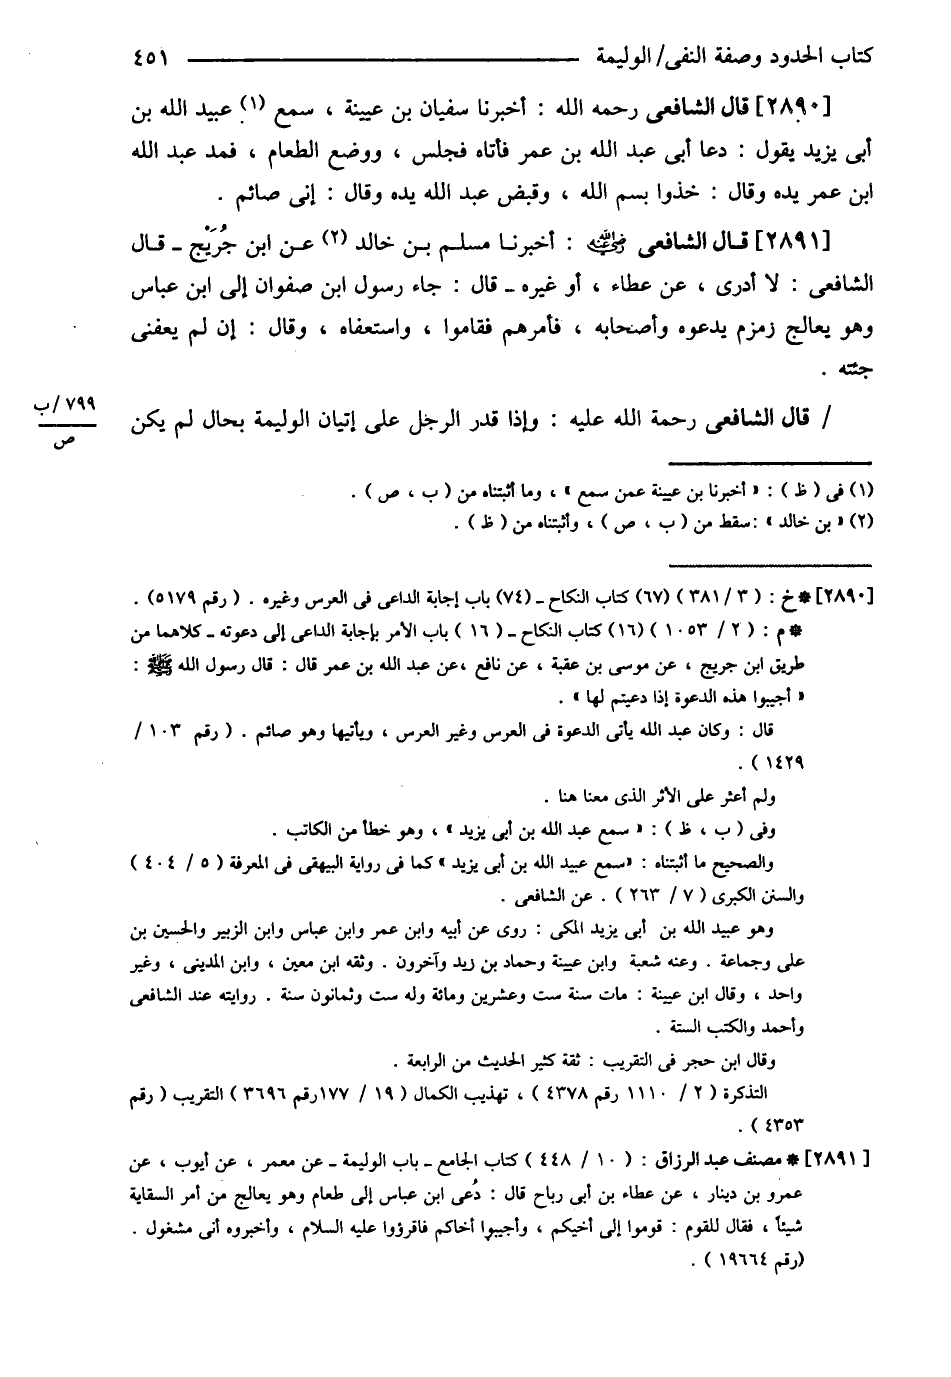 كتاب الحدود وصفة النفى/ الوليمة ٤٥١
[٢٨٩٠] قال الشافعى رحمه الله : أخبرنا سفيان بن عيينة ، سمع (١) عبيد الله بن
أبى يزيد يقول : دعا أبى عبد الله بن عمر فأتاه فجلس ، ووضع الطعام ، فمد عبد الله
ابن عمر يده وقال : خذوا بسم الله ، وقبض عبد الله يده وقال : إنى صائم .
[٢٨٩١] قال الشافعى رَضِيَ اللهُ عَنْهُ : أخبرنا مسلم بن خالد (٢) عن ابن جُرَيْج ـ قال
الشافعى : لا أدرى ، عن عطاء ، أو غيره ـ قال : جاء رسول ابن صفوان إلى ابن عباس
وهو يعالج زمزم يدعوه وأصحابه ، فأمرهم فقاموا ، واستعفاه ، وقال : إن لم يعفنى
جئته .
/ قال الشافعى رحمة الله عليه : وإذا قدر الرجل على إتيان الوليمة بحال لم يكن
٧٩٩/ب
ص
(١) فى ( ظ ) : « أخبرنا بن عيينة عمن سمع » ، وما أثبتناه من ( ب ، ص ) .
(٢) « بن خالد » :سقط من ( ب ، ص ) ، وأثبتناه من ( ظ ) .
[٢٨٩٠] * خ : ( ٣ / ٣٨١ ) (٦٧) كتاب النكاح ـ (٧٤) باب إجابة الداعى فى العرس وغيره . ( رقم ٥١٧٩) .
* م : ( ٢ / ١٠٥٣ ) (١٦) كتاب النكاح ـ ( ١٦ ) باب الأمر بإجابة الداعى إلى دعوته ـ كلاهما من
طريق ابن جريج ، عن موسى بن عقبة ، عن نافع ،عن عبد الله بن عمر قال : قال رسول الله ﷺ :
« أجيبوا هذه الدعوة إذا دعيتم لها » .
قال : وكان عبد الله يأتى الدعوة فى العرس وغير العرس ، ويأتيها وهو صائم . ( رقم ١٠٣ /
١٤٢٩ ) .
ولم أعثر على الأثر الذى معنا هنا .
وفى ( ب ، ظ ) : « سمع عبد الله بن أبى يزيد » ، وهو خطأ من الكاتب .
والصحيح ما أثبتناه : «سمع عبيد الله بن أبى يزيد » كما فى رواية البيهقى فى المعرفة ( ٥ / ٤٠٤ )
والسنن الكبرى ( ٧ / ٢٦٣ ) . عن الشافعى .
وهو عبيد الله بن أبى يزيد المكى : روى عن أبيه وابن عمر وابن عباس وابن الزبير والحسين بن
على وجماعة . وعنه شعبة وابن عيينة وحماد بن زيد وآخرون . وثقه ابن معين ، وابن المدينى ، وغير
واحد ، وقال ابن عيينة : مات سنة ست وعشرين ومائة وله ست وثمانون سنة . روايته عند الشافعى
وأحمد والكتب الستة .
وقال ابن حجر فى التقريب : ثقة كثير الحديث من الرابعة .
التذكرة ( ٢ / ١١١٠ رقم ٤٣٧٨ ) ، تهذيب الكمال ( ١٩ / ١٧٧رقم ٣٦٩٦ ) التقريب ( رقم
٤٣٥٣ ) .
[ ٢٨٩١] * مصنف عبد الرزاق : ( ١٠ / ٤٤٨ ) كتاب الجامع ـ باب الوليمة ـ عن معمر ، عن أيوب ، عن
عمرو بن دينار ، عن عطاء بن أبى رباح قال : دُعى ابن عباس إلى طعام وهو يعالج من أمر السقاية
شيئاً ، فقال للقوم : قوموا إلى أخيكم ، وأجيبوا أخاكم فاقرؤوا عليه السلام ، وأخبروه أنى مشغول .
(رقم ١٩٦٦٤ ) .